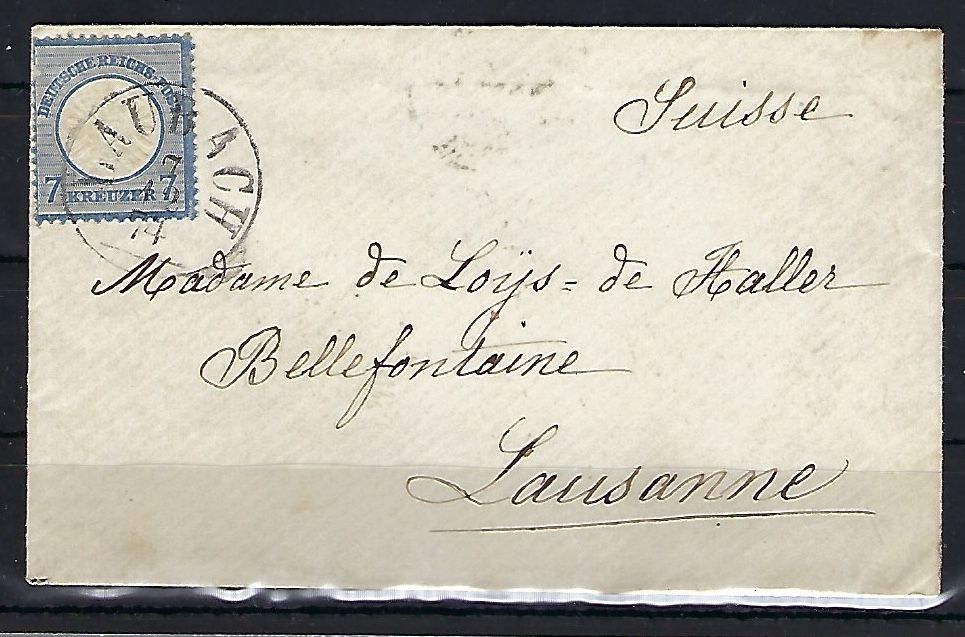 DEUTSCHE REICHS-POST
7 KREUZER 7
7
12
74
Suisse
Madame de Loÿs = de Haller
Bellefontaine
Lausanne